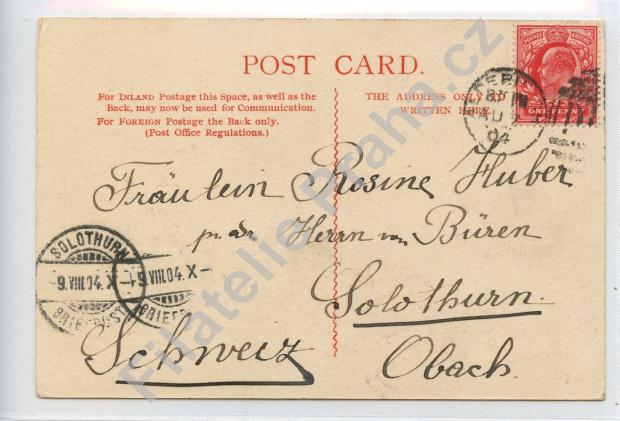 POST CARD.
For INLAND Postage this Space, as well as the
Back, may now be used for Communication.
For FOREIGN Postage the Back only.
(Post Office Regulations.)
THE ADDRESS ONLY TO BE
WRITTEN HERE.
ONE PENNY
04
Fräulein Rosine Huber
p. adr Herrn von Büren
Solothurn.
Obach.
Schweiz
SOLOTHURN
-9.VIII.04.X-
BRIEFPOST
-9.VIII.04.X-
Filatelie Praha.cz